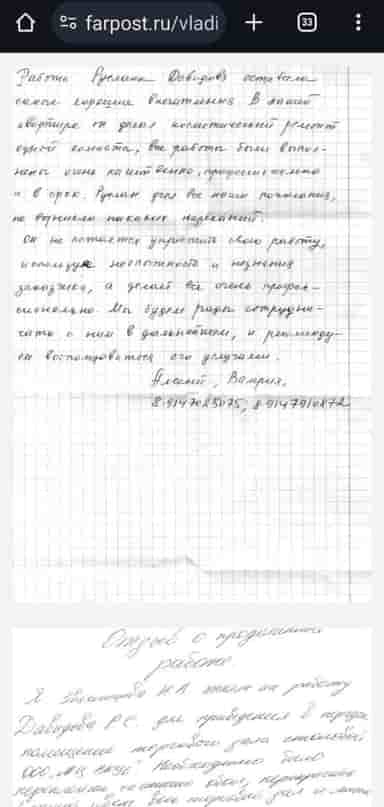 farpost.ru/vladi
33
Работа Руслана Давидова оставила
самое хорошее впечатление. В нашей
квартире он делал косметический ремонт
одной комнаты, все работы были выпол-
нены очень качественно, профессионально
и в срок. Руслан учел все наши пожелания,
не возникло никаких нареканий.
Он не пытается упростить свою работу,
используя неопытность и незнания
заказчика, а делает все очень профес-
сионально. Мы будем рады сотрудни-
чать с ним в дальнейшем, и рекоменду-
ем воспользоваться его услугами.
Алексей, Валерия.
8-9147025075, 8-9147910872
Отзыв о проделанной
работе
Я на работу
Давидова Р.С. для приведения в порядок
помещения торгового зала столовой
ООО Необходимо было